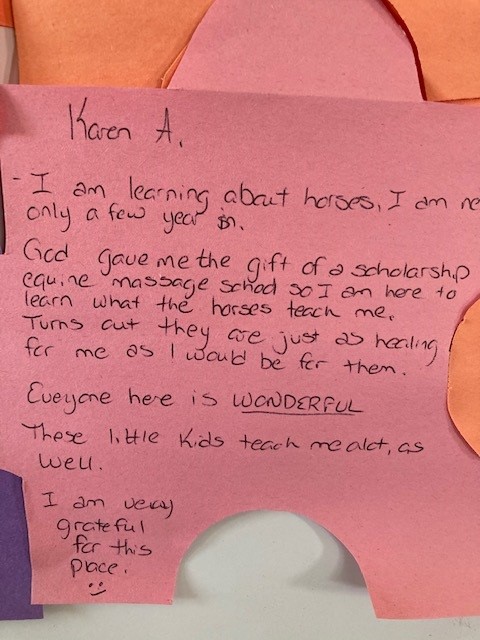 Karen A.
- I am learning about horses, I am ne
only a few year in.
God gave me the gift of a scholarship
equine massage school so I am here to
learn what the horses teach me.
Turns out they are just as healing
for me as I would be for them.
Everyone here is WONDERFUL
These little kids teach me alot, as
well.
I am very
grateful
for this
place.